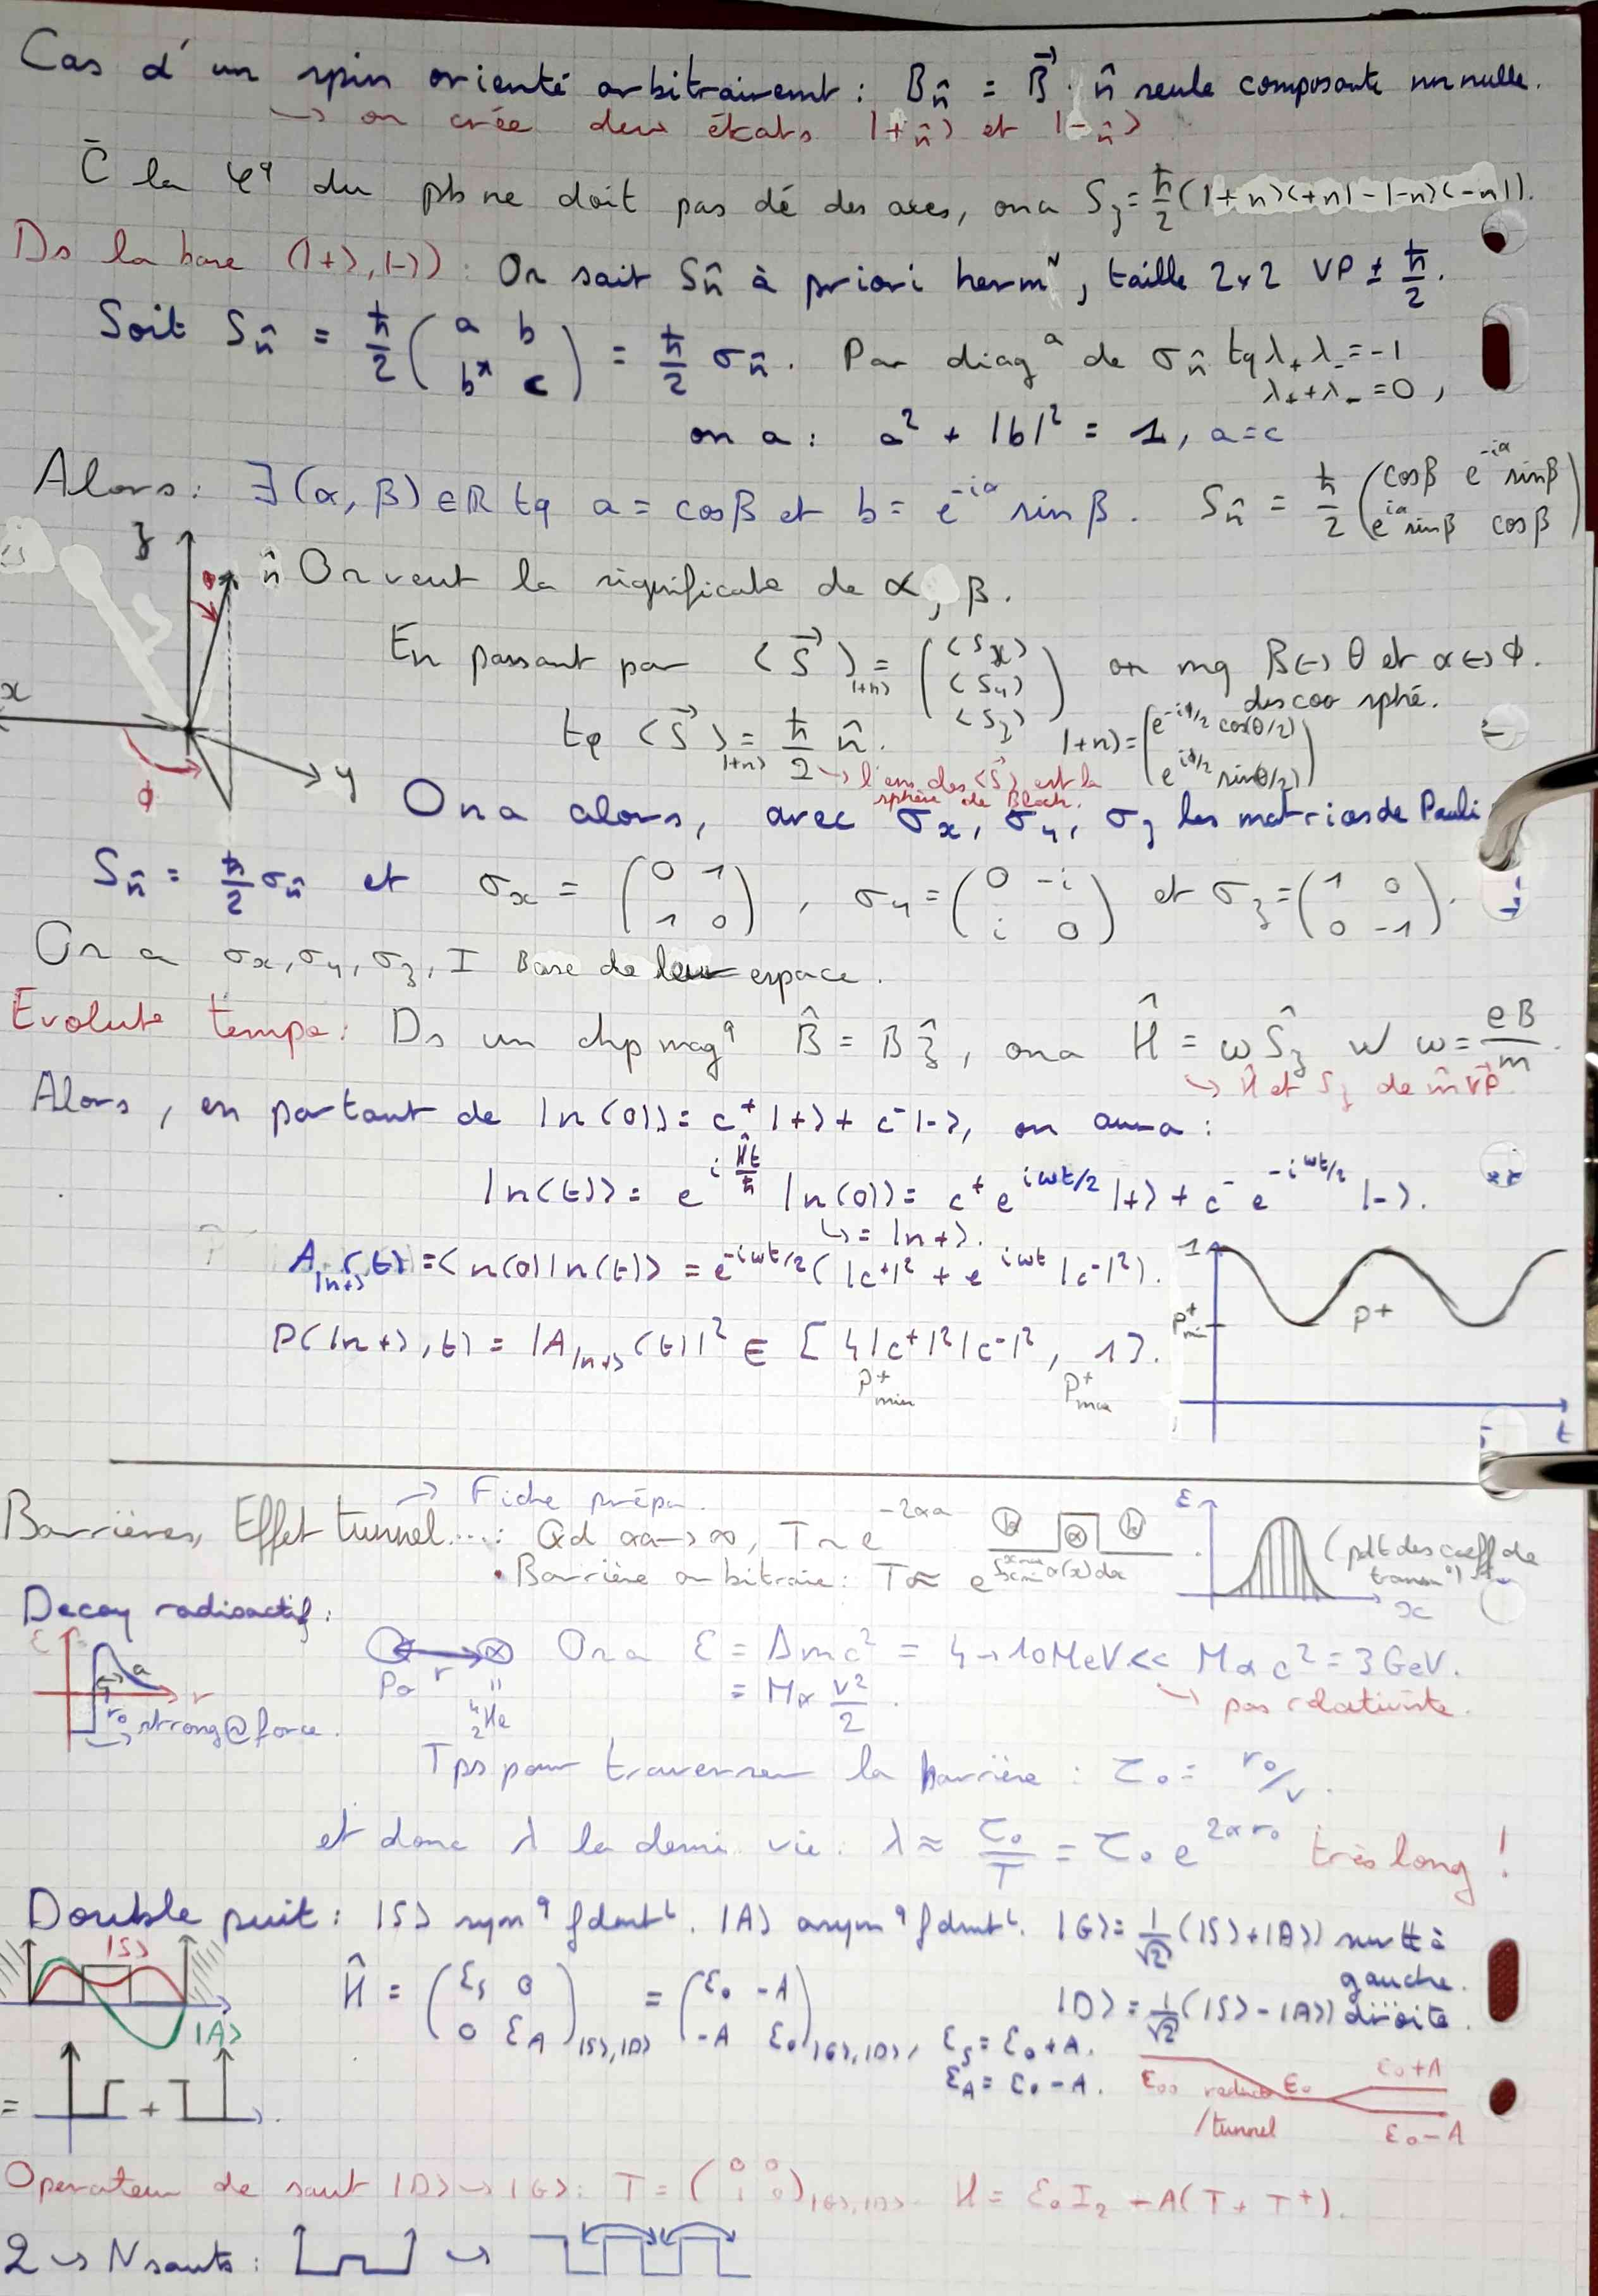 Cas d'un spin orienté arbitrairemt : B_n̂ = B⃗ · n̂ seule composante non nulle.
↪ on crée deux états |+n̂⟩ et |-n̂⟩
C̄ la φq du pb ne doit pas dé des axes, on a S_z = ħ/2 (|+n⟩⟨+n| - |-n⟩⟨-n|).
Ds la base (|+⟩, |-⟩) : On sait S_n̂ à priori herm^n, taille 2x2 VP ± ħ/2.
Soit S_n̂ = ħ/2 (a b ; b* c) = ħ/2 σ_n̂. Par diag^n de σ_n̂ tq λ₊λ₋ = -1
λ₊+λ₋ = 0,
on a : a² + |b|² = 1, a = c
Alors : ∃(α, β) ∈ ℝ tq a = cosβ et b = e^{-iα} sinβ. S_n̂ = ħ/2 (cosβ e^{-iα}sinβ ; e^{iα}sinβ cosβ)
z n̂ θ x y ϕ
On veut la significat° de α, β.
En passant par ⟨S⃗⟩_{|+n⟩} = (⟨S_x⟩ ⟨S_y⟩ ⟨S_z⟩) on mq β↔θ et α↔ϕ.
des coo sphé.
tq ⟨S⃗⟩_{|+n⟩} = ħ/2 n̂. |+n⟩ = (e^{-iϕ/2} cos(θ/2) ; e^{iϕ/2} sin(θ/2))
↪ l'ens des ⟨S⃗⟩ est la
sphère de Bloch.
On a alors, avec σ_x, σ_y, σ_z les matrices de Pauli
S_n̂ = ħ/2 σ_n̂ et σ_x = (0 1 ; 1 0), σ_y = (0 -i ; i 0) et σ_z = (1 0 ; 0 -1).
On a σ_x, σ_y, σ_z, I Base de leur espace.
Evolut° tempo : Ds un chp mag^q B̂ = B ẑ, on a Ĥ = ω Ŝ_z w/ ω = eB/m.
↪ Ĥ et S_z de m̂ V⃗P.
Alors, en partant de |n(0)⟩ = c⁺|+⟩ + c⁻|-⟩, on aura :
|n(t)⟩ = e^{i Ĥt/ħ} |n(0)⟩ = c⁺ e^{iωt/2} |+⟩ + c⁻ e^{-iωt/2} |-⟩.
↪ = |n+⟩.
A_{|n+⟩}(t) = ⟨n(0)|n(t)⟩ = e^{-iωt/2} (|c⁺|² + e^{iωt} |c⁻|²).
P(|n+⟩, t) = |A_{|n+⟩}(t)|² ∈ [4|c⁺|²|c⁻|², 1].
P⁺min P⁺max
1 P⁺min P⁺ t
→ Fiche prépa.
Barrières, Effet tunnel... : Qd αa → ∞, T ~ e^{-2αa}
k α k
ε (pdt des coeff de
transm°) x
• Barrière arbitraire : T ≈ e^{∫ α(x)dx}
Decay radioactif :
ε a r r₀ → strong@force.
Po r α
⁴₂He
On a ε = Δmc² = 4→10 MeV << M_α c² = 3 GeV.
= M_α v²/2. ↪ pas relativiste.
Tps pour traverser la barrière : τ₀ = r₀/v.
et donc λ la demi vie : λ ≈ τ₀/T = τ₀ e^{2αr₀} très long !
Double puit : |S⟩ sym^q fdmt^l. |A⟩ asym^q fdmt^l. |G⟩ = 1/√2 (|S⟩+|A⟩) surtt à
gauche.
|S⟩ |A⟩
Ĥ = (ε_S 0 ; 0 ε_A)_{|S⟩,|D⟩} = (ε₀ -A ; -A ε₀)_{|G⟩,|D⟩}, |D⟩ = 1/√2 (|S⟩-|A⟩) droite.
ε_S = ε₀ + A.
ε_A = ε₀ - A.
ε₀₀ ε₀ ε₀+A
/tunnel ε₀-A
= +
Operateur de saut |D⟩ → |G⟩ : T = (0 0 ; 1 0)_{|G⟩,|D⟩}. H = ε₀ I₂ - A(T + T⁺).
2 → N sauts : →